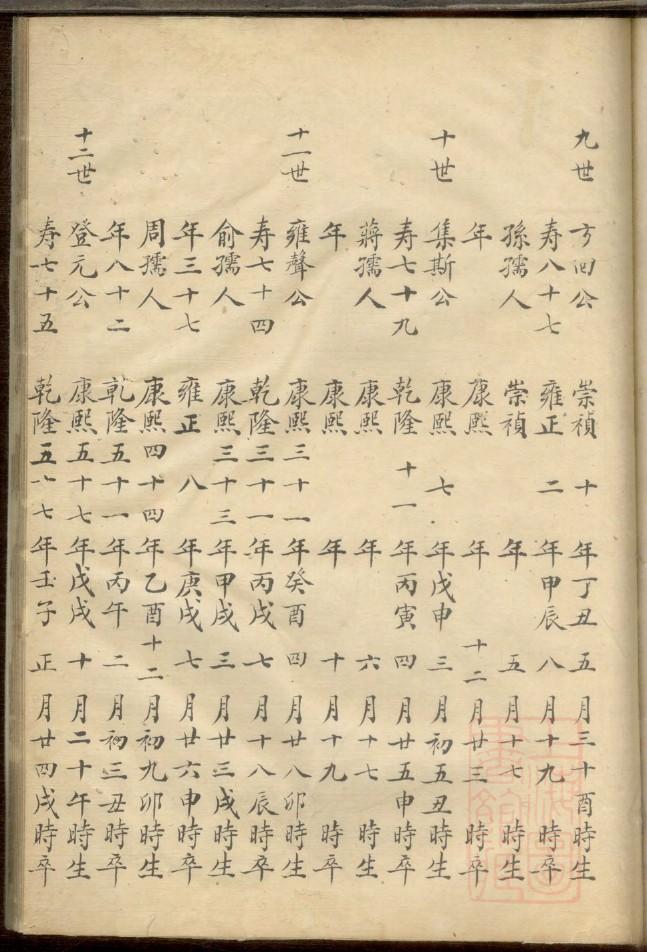 九世 方回公 崇禎十年丁丑五月三十酉時生
寿八十七 雍正二年甲辰八月十九 時卒
孫孺人 崇禎 年 五月十七 時生
年 康熙 年 十二月廿三 時卒
十世 集斯公 康熙七年戊申三月初五丑時生
寿七十九 乾隆十一年丙寅四月廿五申時卒
蔣孺人 康熙 年 六月十七 時生
年 康熙 年 十月十九 時卒
十一世 雍聲公 康熙三十一年癸酉四月廿八卯時生
寿七十四 乾隆三十一年丙戌七月十八辰時卒
俞孺人 康熙三十三年甲戌三月廿三戌時生
年三十七 雍正八年庚戌七月廿六申時卒
周孺人 康熙四十四年乙酉十二月初九卯時生
年八十二 乾隆五十一年丙午二月初三丑時卒
十二世 登元公 康熙五十七年戊戌十月二十午時生
寿七十五 乾隆五十七年壬子正月廿四戌時卒